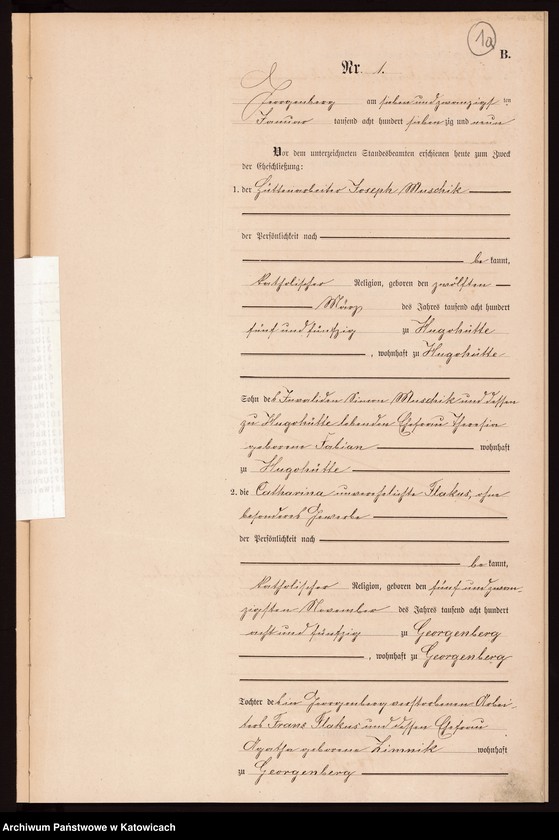 1a
B.
Nr. 1.
Georgenberg am sieben und zwanzigsten
Januar tausend acht hundert siebenzig und neun
Vor dem unterzeichneten Standesbeamten erschienen heute zum Zweck
der Eheschließung:
1. der Hüttenarbeiter Joseph Muschik
der Persönlichkeit nach
bekannt,
katholischer Religion, geboren den zwölften
März des Jahres tausend acht hundert
fünf und fünfzig zu Hugohütte
, wohnhaft zu Hugohütte
Sohn des Invaliden Simon Muschik und dessen
zu Hugohütte lebenden Ehefrau Theresia
geborene Fabian wohnhaft
zu Hugohütte
2. die Catharina unverehelichte Flakus, ohne
besonderes Gewerbe
der Persönlichkeit nach
bekannt,
katholischer Religion, geboren den fünf und zwan-
zigsten November des Jahres tausend acht hundert
acht und fünfzig zu Georgenberg
, wohnhaft zu Georgenberg
Tochter des in Georgenberg verstorbenen Arbei-
ters Franz Flakus und dessen Ehefrau
Agatha geborene Zimnik wohnhaft
zu Georgenberg
Archiwum Państwowe w Katowicach